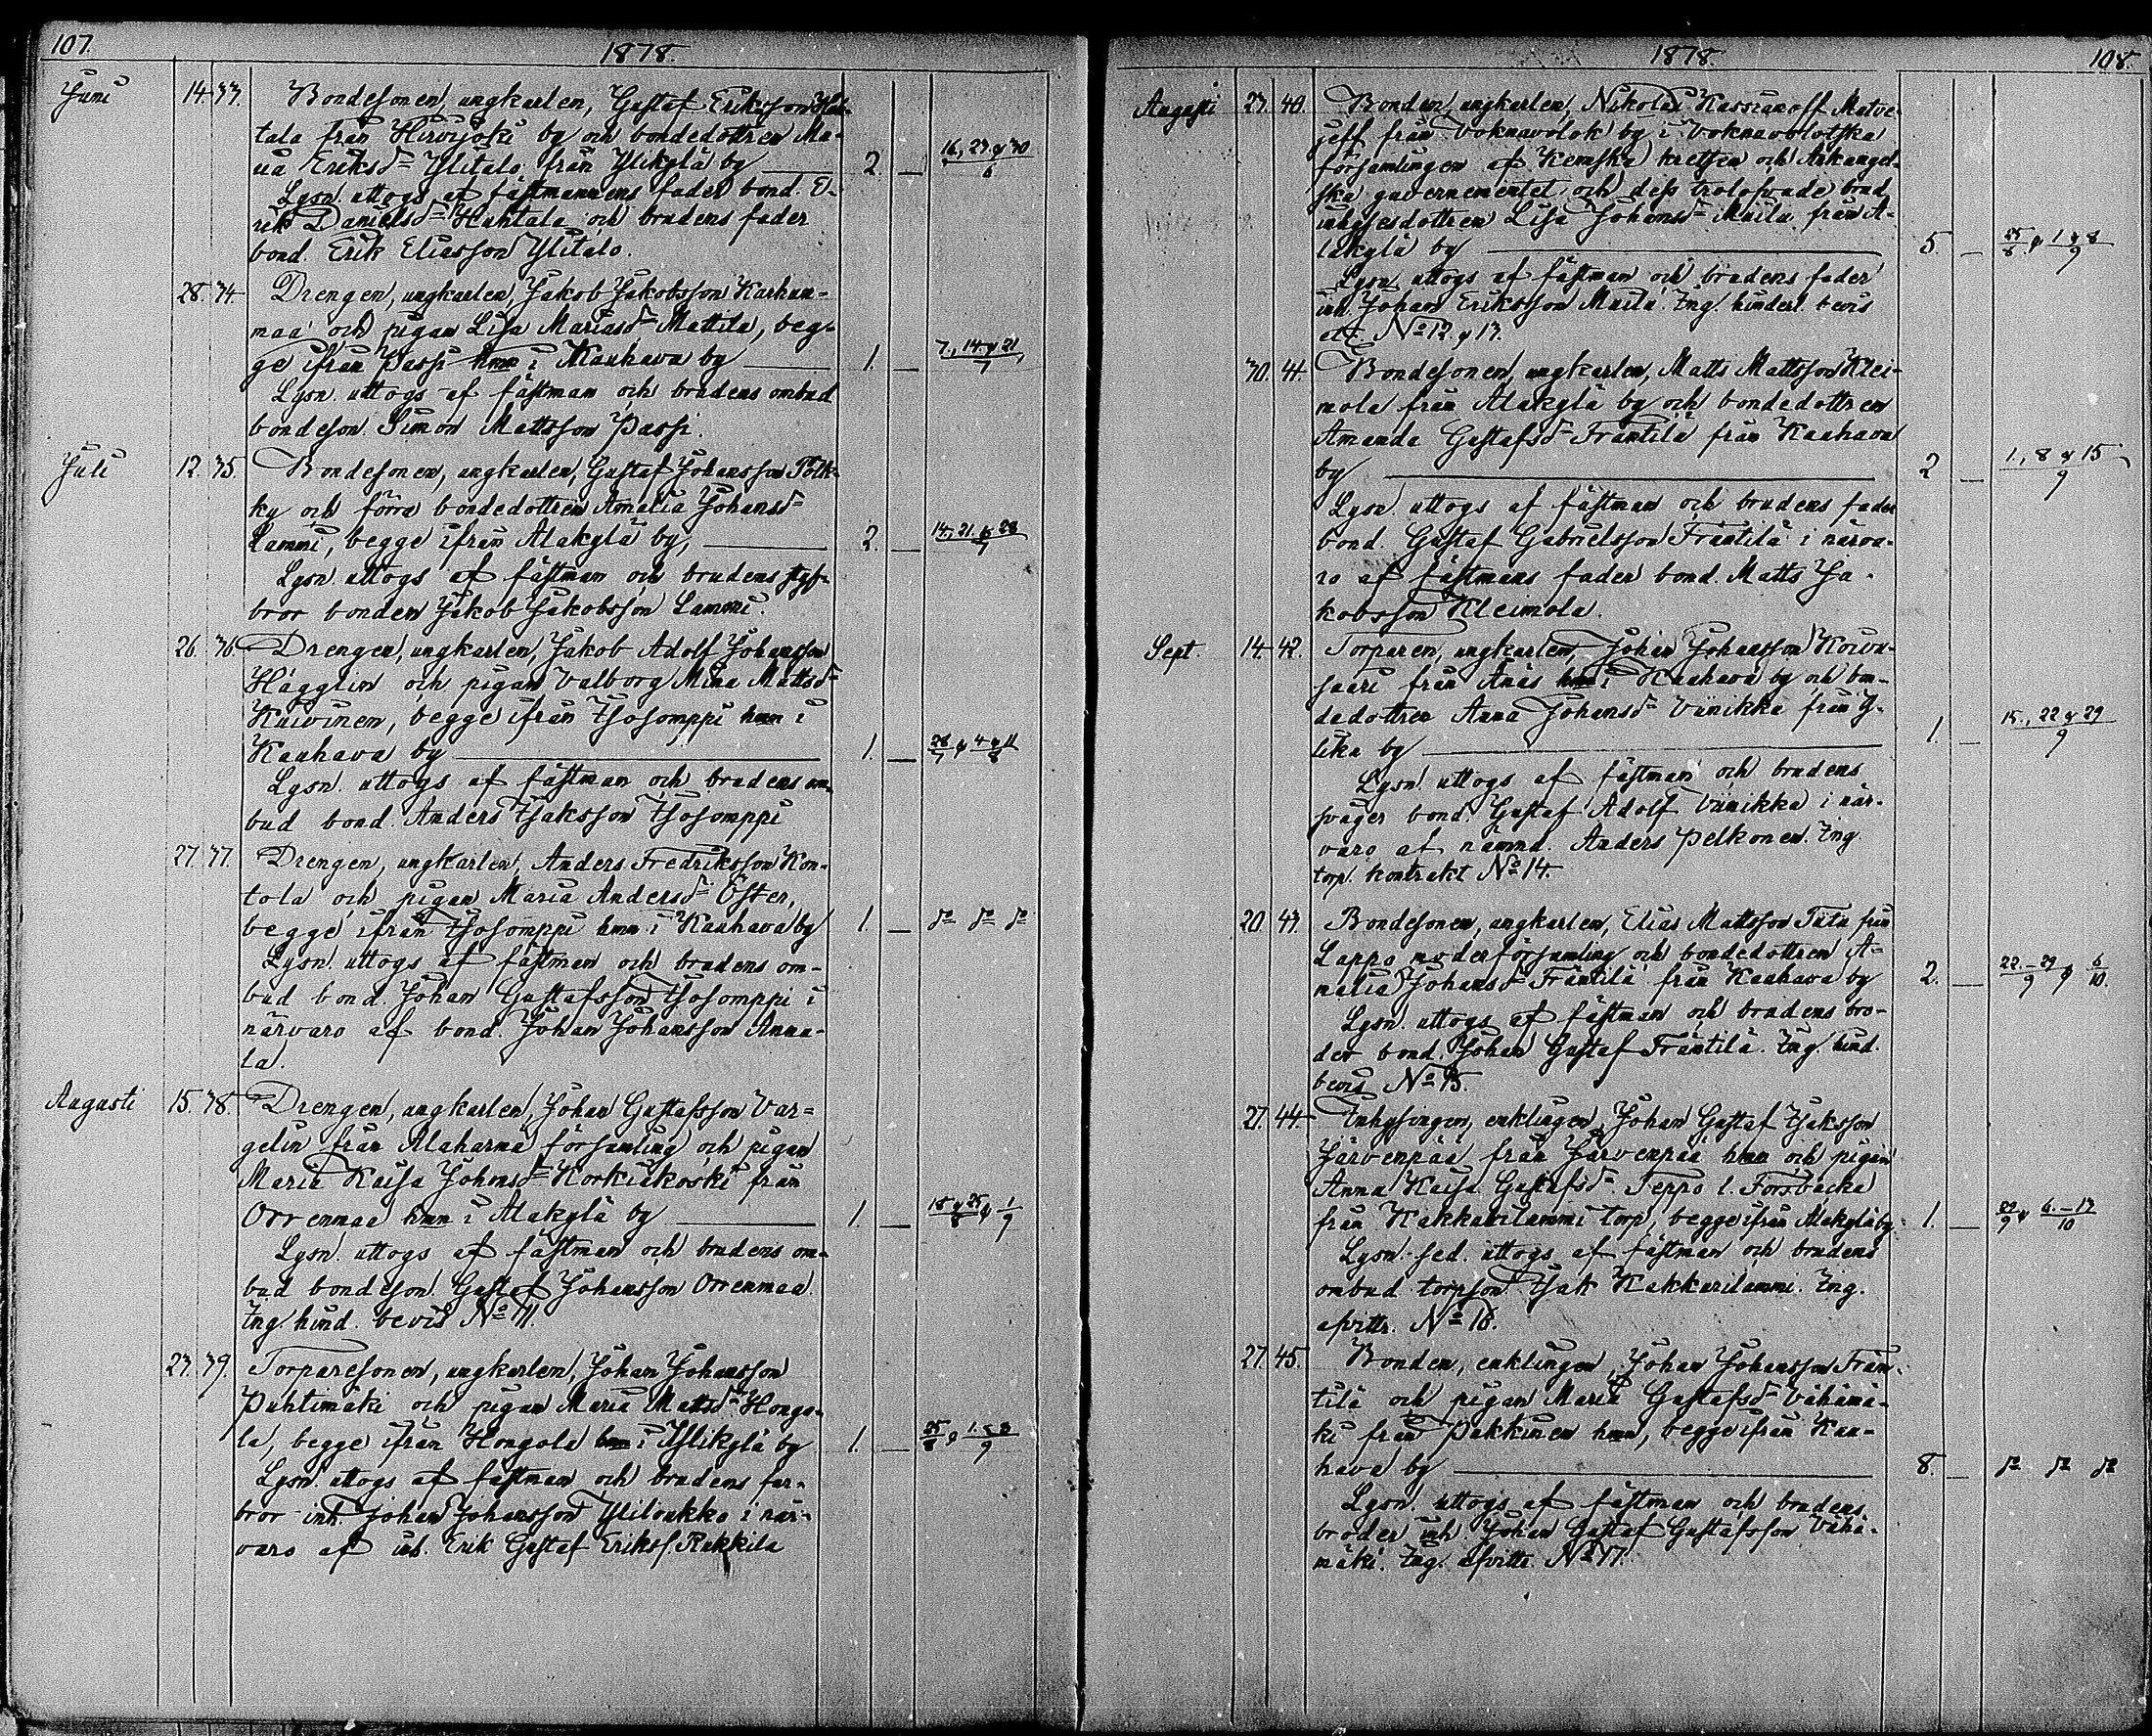 107.
1878.
Juni 14. 33. Bondesonen, ungkarlen, Gustaf Eriksson Huh-
tala från Hirvijoki by och bondedottren Ma-
ria Eriksd:r Ylitalo från Ylikylä by 2. — 16, 23 & 30/6
Lysn. uttogs af fästmannens fader bond. E-
rik Danielss:n Huhtala och brudens fader
bond. Erik Eliasson Ylitalo.
28. 34. Drengen, ungkarlen, Jakob Jakobsson Karhun-
maa och pigan Lisa Mariasd:r Mattila, beg-
ge ifrån Passi hmn i Kauhava by 1. — 7., 14. & 21/7
Lysn. uttogs af fästman och brudens ombud
bondeson. Simon Mattsson Passi.
Juli 12. 35. Bondesonen, ungkarlen, Gustaf Johansson Pölk-
ky och förra bondedottren Amalia Johansd:r
Lammi, begge ifrån Alakylä by, 2. — 14., 21. & 28/7
Lysn. uttogs af fästman och brudens styf-
bror bonden Jakob Jakobsson Lammi.
26. 36. Drengen, ungkarlen, Jakob Adolf Johansson
Hägglin och pigan Valborg Mina Mattsd:r
Kuivinen, begge ifrån Isosomppi hmn i
Kauhava by 1. — 28/7 & 4 & 11/8
Lysn. uttogs af fästman och brudens om-
bud bond. Anders Isaksson Isosomppi
27. 37. Drengen, ungkarlen, Anders Fredriksson Kon-
tola och pigan Maria Andersd:r Öster,
begge ifrån Isosomppi hmn i Kauhava by 1. — d:o d:o d:o
Lysn. uttogs af fästman och brudens om-
bud bond. Johan Gustafsson Isosomppi i
närvaro af bond. Johan Johansson Anna-
la.
Augusti 15. 38. Drengen, ungkarlen, Johan Gustafsson Var-
gelin från Alahärmä församling och pigan
Maria Kaisa Johansd:r Korkiakoski från
Orrenmaa hmn i Alakylä by 1. — 18 & 25/8 & 1/9
Lysn. uttogs af fästman och brudens om-
bud bondeson. Gustaf Johansson Orrenmaa.
Ing. hind. bevis No 11.
23. 39. Torparesonen, ungkarlen, Johan Johansson
Puhtimäki och pigan Maria Mattsd:r Hongo-
la, begge ifrån Hongola hmn i Ylikylä by 1. — 25/8 & 1 & 8/9
Lysn. uttogs af fästman och brudens far-
bror inh. Johan Johansson Yliloukko i när-
varo af inh. Erik Gustaf Erikss. Rukkila
1878.
108.
Augusti 23. 40. Bonden, ungkarlen, Nikolai Kassianoff Matve-
jeff från Voknavolok by i Voknavolotska
församlingen af Kemska kretsen och Arkangel-
ska guvernementet och dess trolofvade brud
inhysesdottren Lisa Johansd:r Maila från A-
lakylä by 5. — 25/8 & 1 & 8/9
Lysn. uttogs af fästman och brudens fader
inh. Johan Eriksson Maila. Ing. hinderl. bevis
att. No 12. & 13.
30. 41. Bondesonen, ungkarlen, Matts Mattsson Klei-
mola från Alakylä by och bondedottren
Amanda Gustafsd:r Fräntilä från Kauhava
by 2 — 1., 8 & 15/9
Lysn. uttogs af fästman och brudens fader
bond. Gustaf Gabrielsson Fräntilä i närva-
ro af fästmans fader bond. Matts Ja-
kobsson Kleimola.
Sept. 14. 42. Torparen, ungkarlen, Johan Johansson Koivu-
saari från Änäs hmn i Kauhava by och bon-
dedottren Anna Johansd:r Viinikka från Y-
lika by 1. — 15., 22 & 29/9
Lysn. uttogs af fästman och brudens
svåger bond. Gustaf Adolf Viinikka i när-
varo af nämnd. Anders Pelkonen. Ing.
torp. kontrakt No 14.
20. 43. Bondesonen, ungkarlen, Elias Mattsson Tiila från
Lappo moderförsamling och bondedottren A-
malia Johansd:r Fräntilä från Kauhava by 2. — 22.-29/9 & 6/10.
Lysn. uttogs af fästman och brudens bro-
der bond. Johan Gustaf Fräntilä. Ing. hind.
bevis No 15.
27. 44. Inhysingen, enklingen, Johan Gustaf Isaksson
Järvenpää från Järvenpää hmn och pigan
Anna Kaisa Gustafsd:r Teppo l. Forsbacka
från Kakkurilammi torp, begge ifrån Alakylä by 1. — 29/9 & 6.-13/10
Lysn.-sed. uttogs af fästman och brudens
ombud torpson Isak Kakkurilammi. Ing.
afvittr. No 16.
27. 45. Bonden, enklingen, Johan Johansson Frän-
tilä och pigan Maria Gustafsd:r Vähämä-
ki från Pakkinen hmn, begge ifrån Kau-
hava by 8. — d:o d:o d:o
Lysn. uttogs af fästman och brudens
broder inh. Johan Gustaf Gustafsson Vähä-
mäki. Ing. afvittr. No 17.